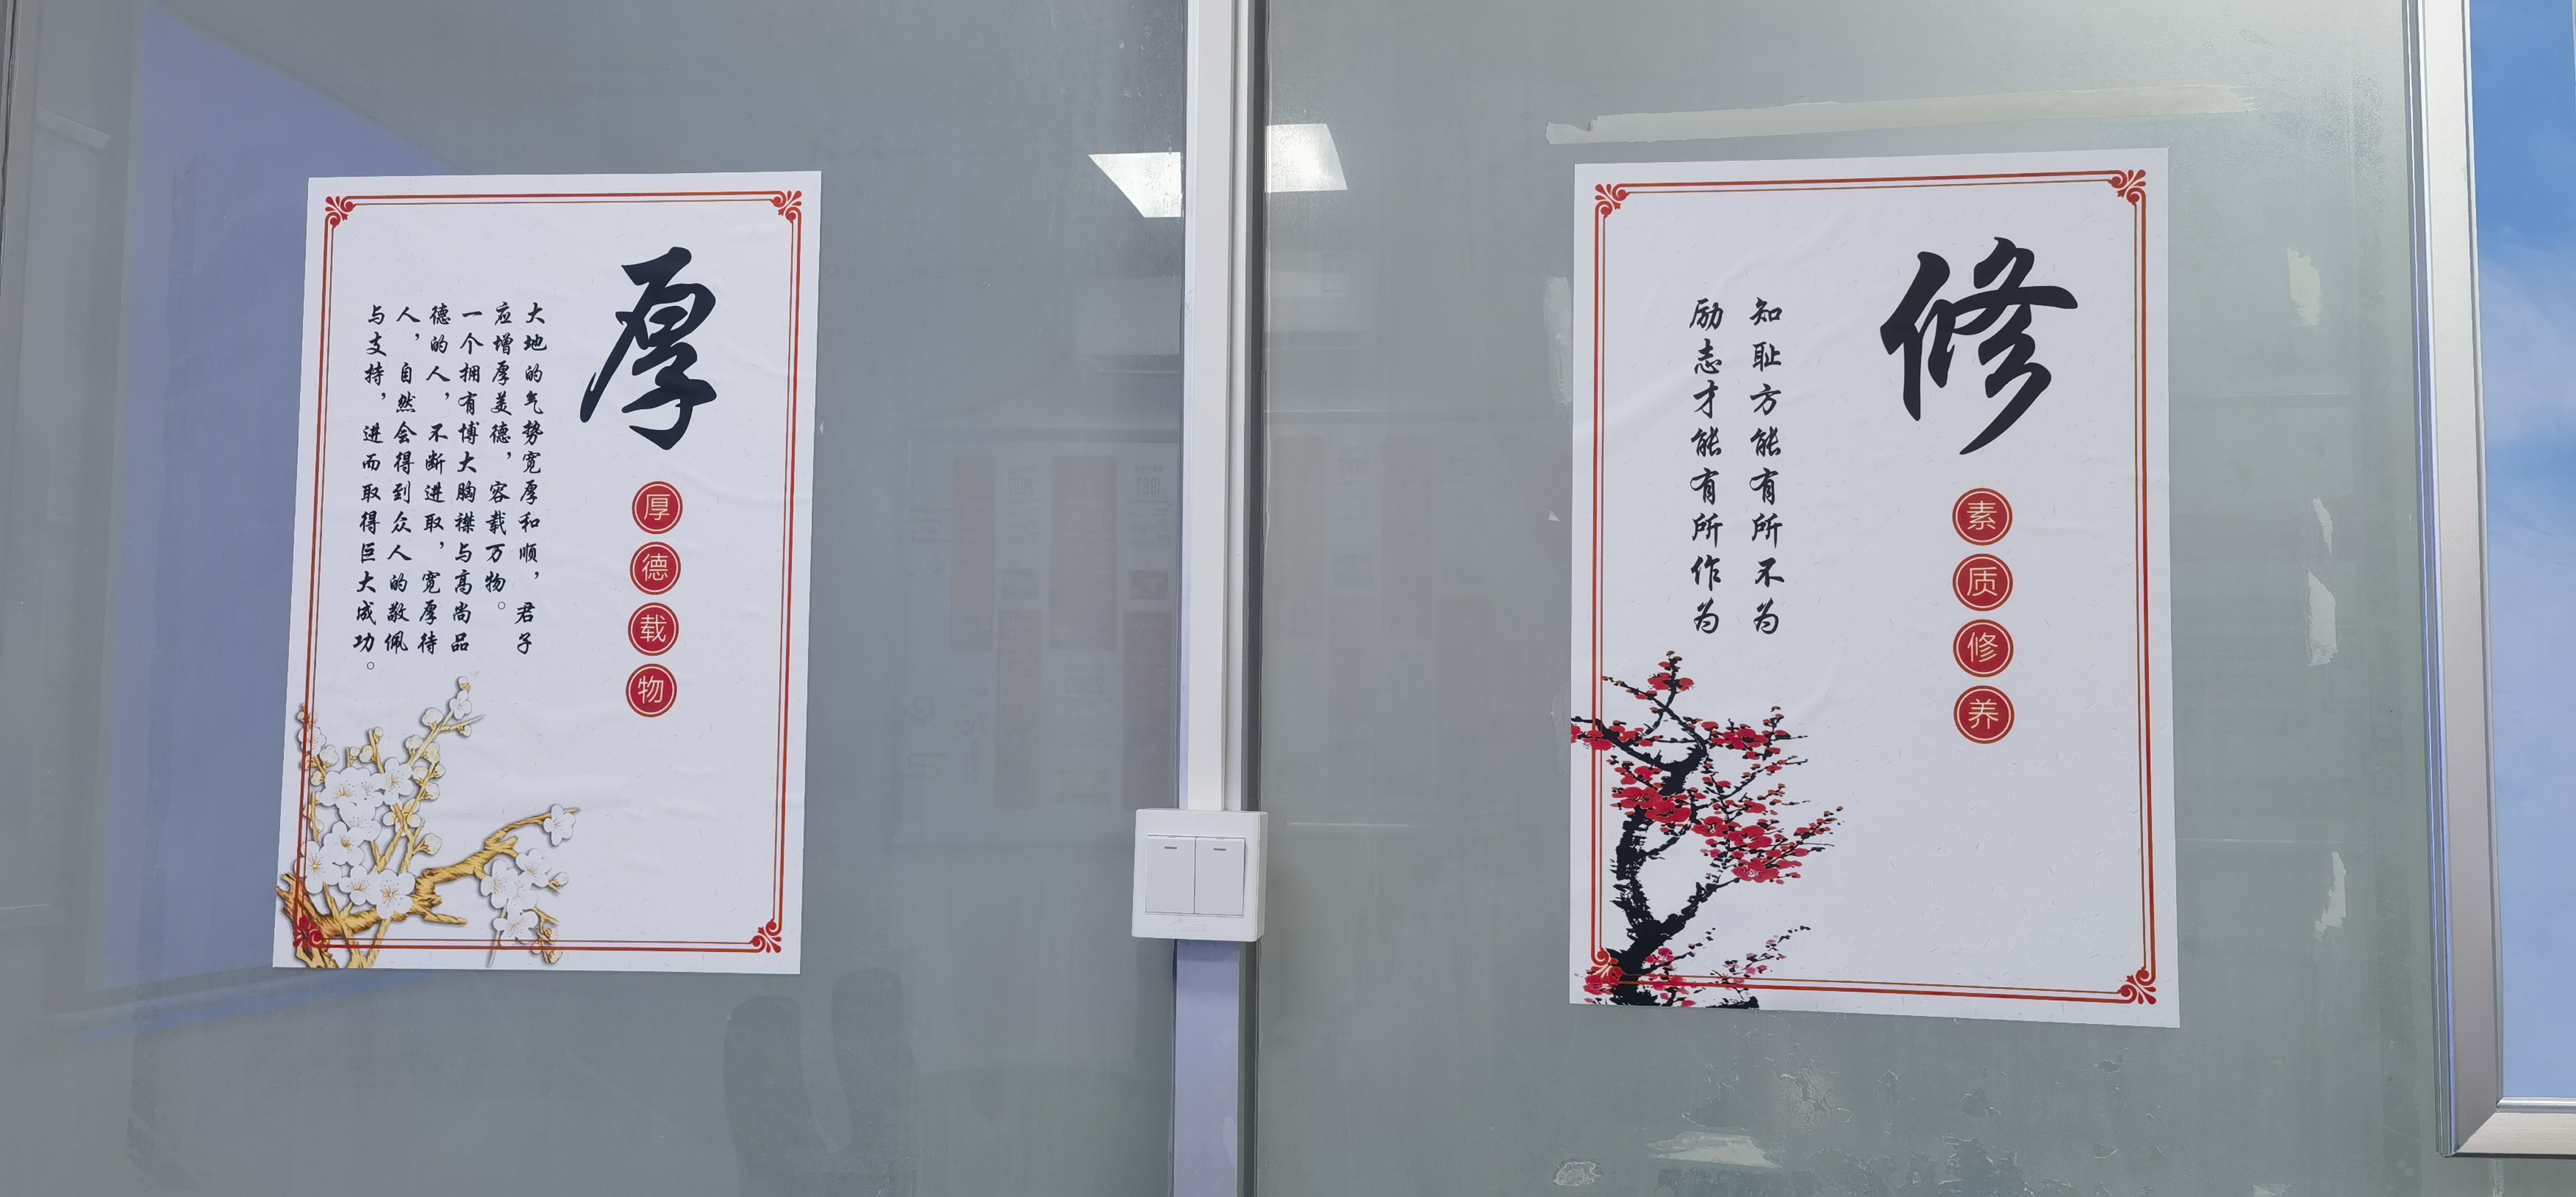 厚
厚德载物
大地的气势宽厚和顺，君子
应增厚美德，容载万物。
一个拥有博大胸襟与高尚品
德的人，不断进取，宽厚待
人，自然会得到众人的敬佩
与支持，进而取得巨大成功。
修
素质修养
知耻方能有所不为
励志才能有所作为